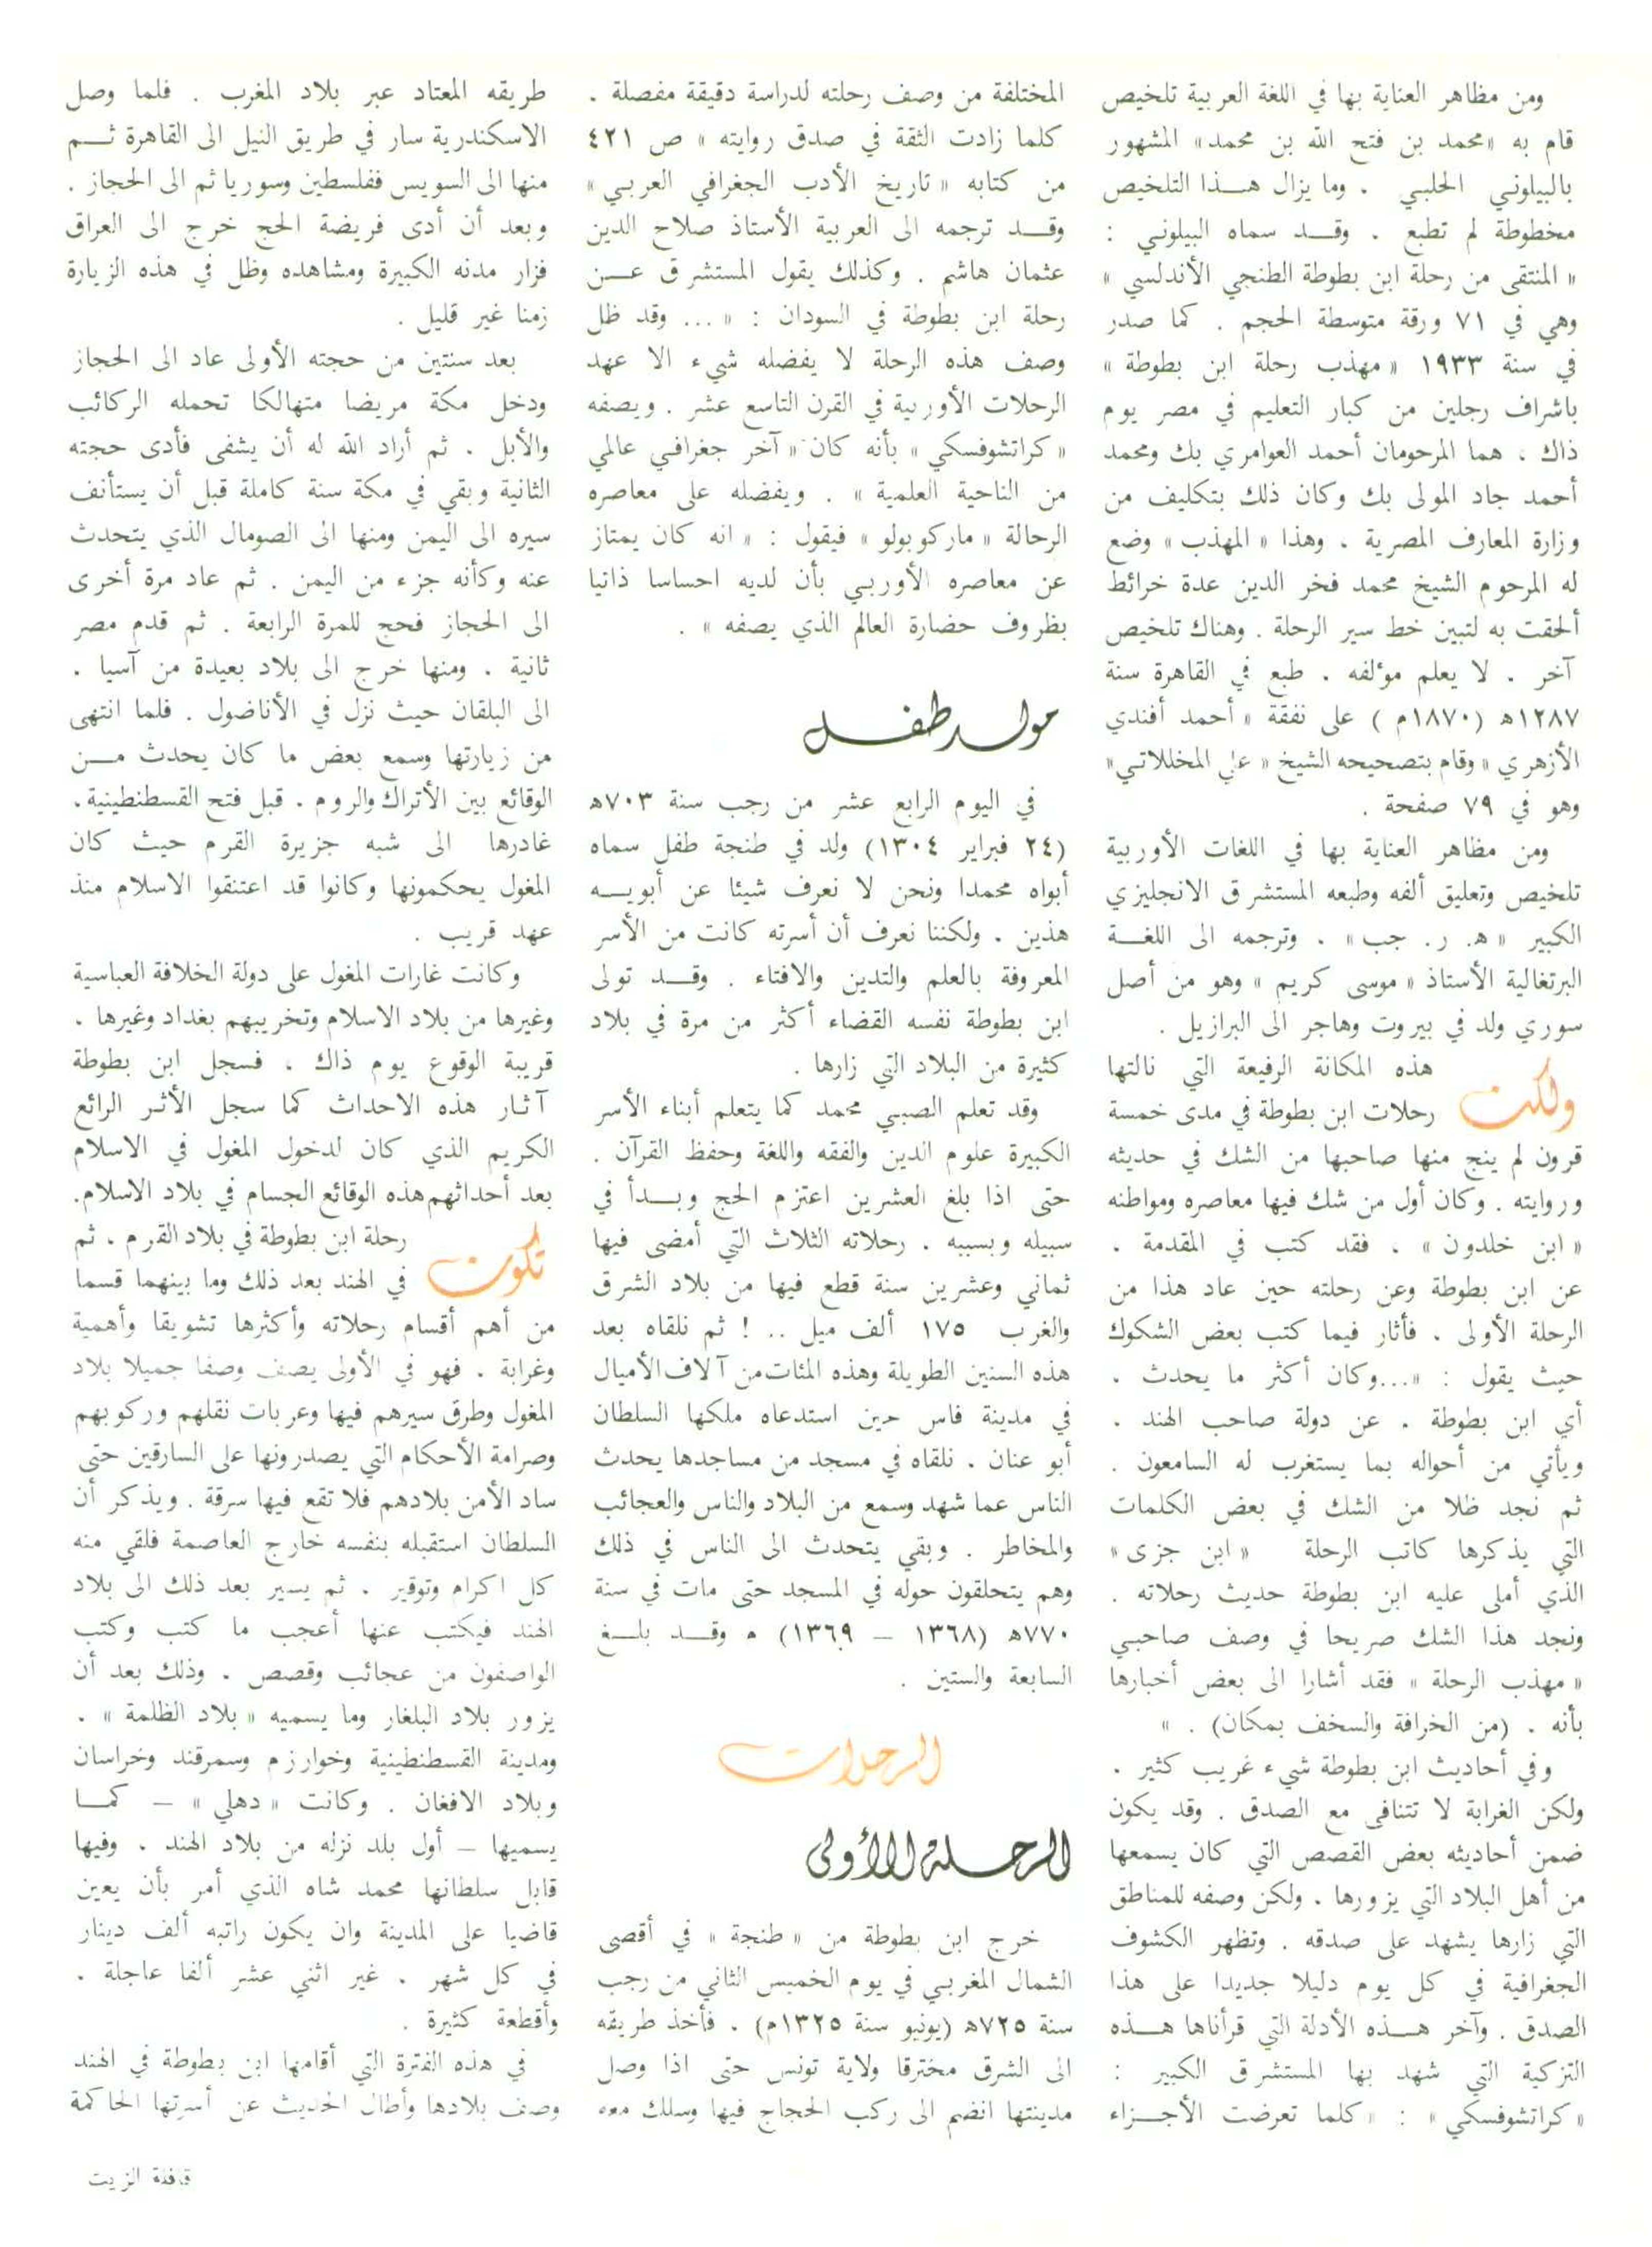 ومن مظاهر العناية بها في اللغة العربية تلخيص
قام به «محمد بن فتح الله بن محمد» المشهور
بالبيلوني الحلبي . وما يزال هذا التلخيص
مخطوطة لم تطبع . وقد سماه البيلوني :
« المنتقى من رحلة ابن بطوطة الطنجي الأندلسي »
وهي في ٧١ ورقة متوسطة الحجم . كما صدر
في سنة ١٩٣٣ « مهذب رحلة ابن بطوطة »
باشراف رجلين من كبار التعليم في مصر يوم
ذاك ، هما المرحومان أحمد العوامري بك ومحمد
أحمد جاد المولى بك وكان ذلك بتكليف من
وزارة المعارف المصرية . وهذا « المهذب » وضع
له المرحوم الشيخ محمد فخر الدين عدة خرائط
ألحقت به لتبين خط سير الرحلة . وهناك تلخيص
آخر . لا يعلم مؤلفه . طبع في القاهرة سنة
١٢٨٧ه (١٨٧٠م ) على نفقة « أحمد أفندي
الأزهري » وقام بتصحيحه الشيخ « علي المخللاتي»
وهو في ٧٩ صفحة .
ومن مظاهر العناية بها في اللغات الأوربية
تلخيص وتعليق ألفه وطبعه المستشرق الانجليزي
الكبير « ه. ر. جب» . وترجمه الى اللغة
البرتغالية الأستاذ « موسى كريم » وهو من أصل
سوري ولد في بيروت وهاجر الى البرازيل .
ولكن هذه المكانة الرفيعة التي نالتها
رحلات ابن بطوطة في مدى خمسة
قرون لم ينج منها صاحبها من الشك في حديثه
وروايته . وكان أول من شك فيها معاصره ومواطنه
« ابن خلدون » . فقد كتب في المقدمة .
عن ابن بطوطة وعن رحلته حين عاد هذا من
الرحلة الأولى . فأثار فيما كتب بعض الشكوك
حيث يقول : «...وكان أكثر ما يحدث .
أي ابن بطوطة . عن دولة صاحب الهند .
ويأتي من أحواله بما يستغرب له السامعون .
ثم نجد ظلا من الشك في بعض الكلمات
التي يذكرها كاتب الرحلة « ابن جزى »
الذي أملى عليه ابن بطوطة حديث رحلاته .
ونجد هذا الشك صريحا في وصف صاحبي
« مهذب الرحلة » فقد أشارا الى بعض أخبارها
بأنه . (من الخرافة والسخف بمكان) . »
وفي أحاديث ابن بطوطة شيء غريب كثير .
ولكن الغرابة لا تتنافى مع الصدق . وقد يكون
ضمن أحاديثه بعض القصص التي كان يسمعها
من أهل البلاد التي يزورها . ولكن وصفه للمناطق
التي زارها يشهد على صدقه . وتظهر الكشوف
الجغرافية في كل يوم دليلا جديدا على هذا
الصدق . وآخر هذه الأدلة التي قرأناها هذه
التزكية التي شهد بها المستشرق الكبير :
« كراتشوفسكي » : « كلما تعرضت الأجزاء
المختلفة من وصف رحلته لدراسة دقيقة مفصلة .
كلما زادت الثقة في صدق روايته » ص ٤٢١
من كتابه « تاريخ الأدب الجغرافي العربي »
وقد ترجمه الى العربية الأستاذ صلاح الدين
عثمان هاشم . وكذلك يقول المستشرق عن
رحلة ابن بطوطة في السودان : « ... وقد ظل
وصف هذه الرحلة لا يفضله شيء الا عهد
الرحلات الأوربية في القرن التاسع عشر . ويصفه
« كراتشوفسكي » بأنه كان « آخر جغرافي عالمي
من الناحية العلمية » . ويفضله على معاصره
الرحالة « ماركوبولو » فيقول : « انه كان يمتاز
عن معاصره الأوربي بأن لديه احساسا ذاتيا
بظروف حضارة العالم الذي يصفه » .
مولد طفل
في اليوم الرابع عشر من رجب سنة ٧٠٣ه
(٢٤ فبراير ١٣٠٤) ولد في طنجة طفل سماه
أبواه محمدا ونحن لا نعرف شيئا عن أبويه
هذين . ولكننا نعرف أن أسرته كانت من الأسر
المعروفة بالعلم والتدين والافتاء . وقد تولى
ابن بطوطة نفسه القضاء أكثر من مرة في بلاد
كثيرة من البلاد التي زارها .
وقد تعلم الصبي محمد كما يتعلم أبناء الأسر
الكبيرة علوم الدين والفقه واللغة وحفظ القرآن .
حتى اذا بلغ العشرين اعتزم الحج وبدأ في
سبيله وبسببه . رحلاته الثلاث التي أمضى فيها
ثماني وعشرين سنة قطع فيها من بلاد الشرق
والغرب ١٧٥ ألف ميل .. ! ثم نلقاه بعد
هذه السنين الطويلة وهذه المئات من آلاف الأميال
في مدينة فاس حين استدعاه ملكها السلطان
أبو عنان . نلقاه في مسجد من مساجدها يحدث
الناس عما شهد وسمع من البلاد والناس والعجائب
والمخاطر . وبقي يتحدث الى الناس في ذلك
وهم يتحلقون حوله في المسجد حتى مات في سنة
٧٧٠ه (١٣٦٨ – ١٣٦٩) م وقد بلغ
السابعة والستين .
الرحلات
الرحلة الأولى
خرج ابن بطوطة من « طنجة » في أقصى
الشمال المغربي في يوم الخميس الثاني من رجب
سنة ٧٢٥ه (يونيو سنة ١٣٢٥م) . فأخذ طريقه
الى الشرق مخترقا ولاية تونس حتى اذا وصل
مدينتها انضم الى ركب الحجاج فيها وسلك معه
طريقه المعتاد عبر بلاد المغرب . فلما وصل
الاسكندرية سار في طريق النيل الى القاهرة ثم
منها الى السويس ففلسطين وسوريا ثم الى الحجاز .
وبعد أن أدى فريضة الحج خرج الى العراق
فزار مدنه الكبيرة ومشاهده وظل في هذه الزيارة
زمنا غير قليل .
بعد سنتين من حجته الأولى عاد الى الحجاز
ودخل مكة مريضا متهالكا تحمله الركائب
والأبل . ثم أراد الله له أن يشفى فأدى حجته
الثانية وبقي في مكة سنة كاملة قبل أن يستأنف
سيره الى اليمن ومنها الى الصومال الذي يتحدث
عنه وكأنه جزء من اليمن . ثم عاد مرة أخرى
الى الحجاز فحج للمرة الرابعة . ثم قدم مصر
ثانية . ومنها خرج الى بلاد بعيدة من آسيا .
الى البلقان حيث نزل في الأناضول . فلما انتهى
من زيارتها وسمع بعض ما كان يحدث من
الوقائع بين الأتراك والروم . قبل فتح القسطنطينية.
غادرها الى شبه جزيرة القرم حيث كان
المغول يحكمونها وكانوا قد اعتنقوا الاسلام منذ
عهد قريب .
وكانت غارات المغول على دولة الخلافة العباسية
وغيرها من بلاد الاسلام وتخريبهم بغداد وغيرها .
قريبة الوقوع يوم ذاك ، فسجل ابن بطوطة
آثار هذه الاحداث كما سجل الأثر الرائع
الكريم الذي كان لدخول المغول في الاسلام
بعد أحداثهم هذه الوقائع الجسام في بلاد الاسلام.
تكون رحلة ابن بطوطة في بلاد القرم . ثم
في الهند بعد ذلك وما بينهما قسما
من أهم أقسام رحلاته وأكثرها تشويقا وأهمية
وغرابة . فهو في الأولى يصف وصفا جميلا بلاد
المغول وطرق سيرهم فيها وعربات نقلهم وركوبهم
وصرامة الأحكام التي يصدرونها على السارقين حتى
ساد الأمن بلادهم فلا تقع فيها سرقة . ويذكر أن
السلطان استقبله بنفسه خارج العاصمة فلقي منه
كل اكرام وتوقير . ثم يسير بعد ذلك الى بلاد
الهند فيكتب عنها أعجب ما كتب وكتب
الواصفون من عجائب وقصص . وذلك بعد أن
يزور بلاد البلغار وما يسميه « بلاد الظلمة » .
ومدينة القسطنطينية وخوارزم وسمرقند وخراسان
وبلاد الافغان . وكانت « دهلي » – كما
يسميها – أول بلد نزله من بلاد الهند . وفيها
قابل سلطانها محمد شاه الذي أمر بأن يعين
قاضيا على المدينة وان يكون راتبه ألف دينار
في كل شهر . غير اثني عشر ألفا عاجلة .
وأقطعة كثيرة .
في هذه الفترة التي أقامها ابن بطوطة في الهند
وصف بلادها وأطال الحديث عن أسرتها الحاكمة
قافلة الزيت